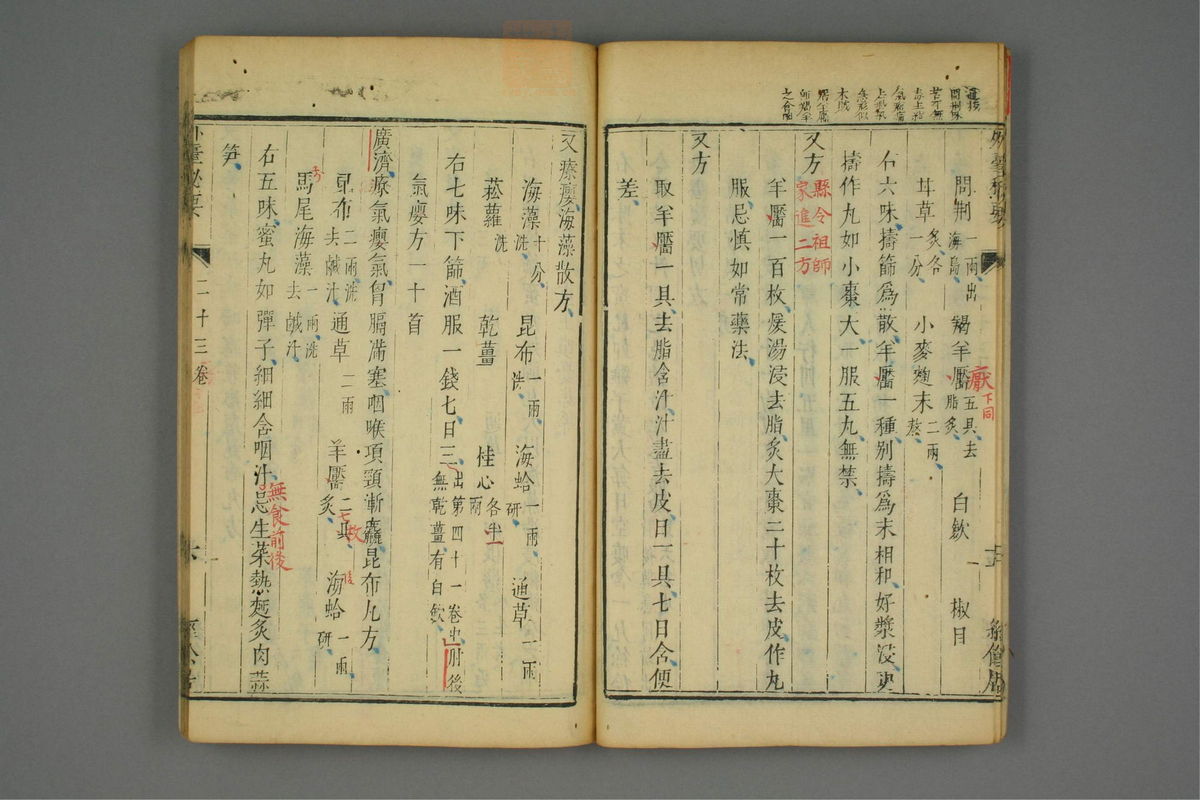 問荆一兩出海島 羯羊靨五具去脂炙 白歛 椒目
甘草炙各一分 小麥麴末二兩熬
右六味擣篩爲散羊靨一種別擣爲末相和好漿浸更
擣作丸如小棗大一服五丸無禁
又方
縣令祖師
家進二方
羊靨一百枚煖湯浸去脂炙大棗二十枚去皮作丸
服忌慎如常藥法
又方
取羊靨一具去脂含汁汁盡去皮日一具七日含便
差
厭下同
又療癭海藻散方
海藻十分洗 昆布一兩洗 海蛤一兩研 通草一兩
菘蘿洗 乾薑 桂心各半兩
右七味下篩酒服一錢七日三出第四十一卷中肘後無乾薑有白歛
氣癭方一十首
廣濟療氣癭氣胷膈滿塞咽喉項頸漸麤昆布丸方
昆布二兩洗去鹹汁 通草一兩 羊靨二具炙 海蛤一兩研
馬尾海藻一兩洗去鹹汁
右五味蜜丸如彈子細細含咽汁忌生菜熱麪炙肉蒜
笋
無食前後
七枚
二十三卷